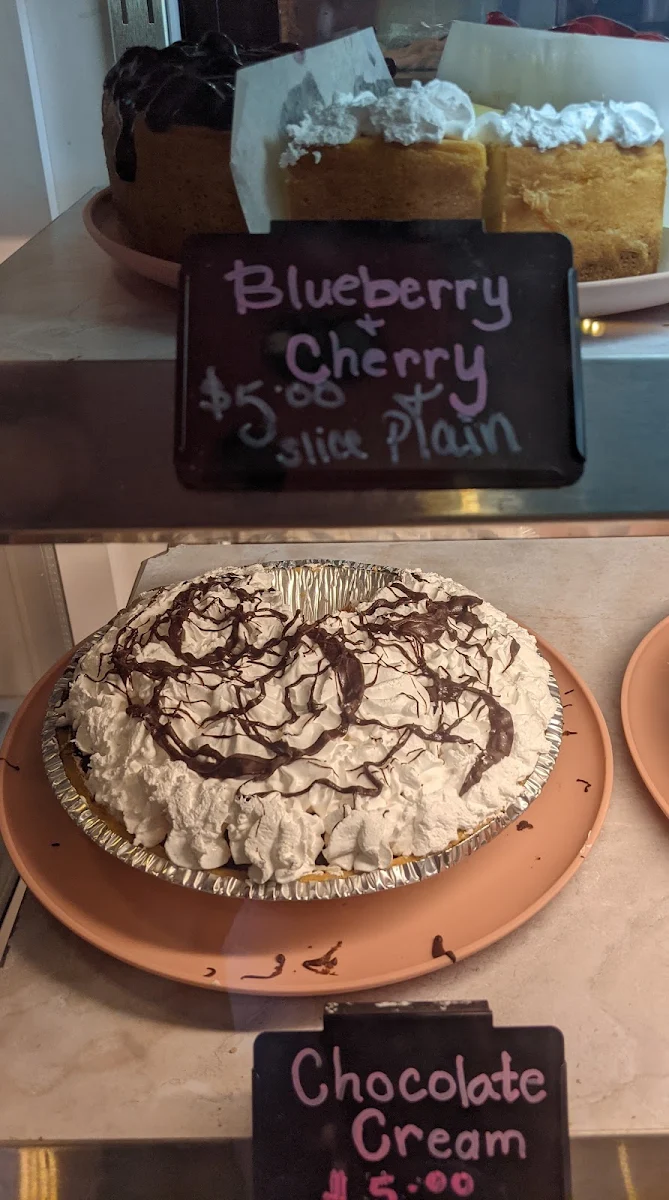 Blueberry
+
Cherry
$5.00 +
slice Plain
Chocolate
Cream
$5.00